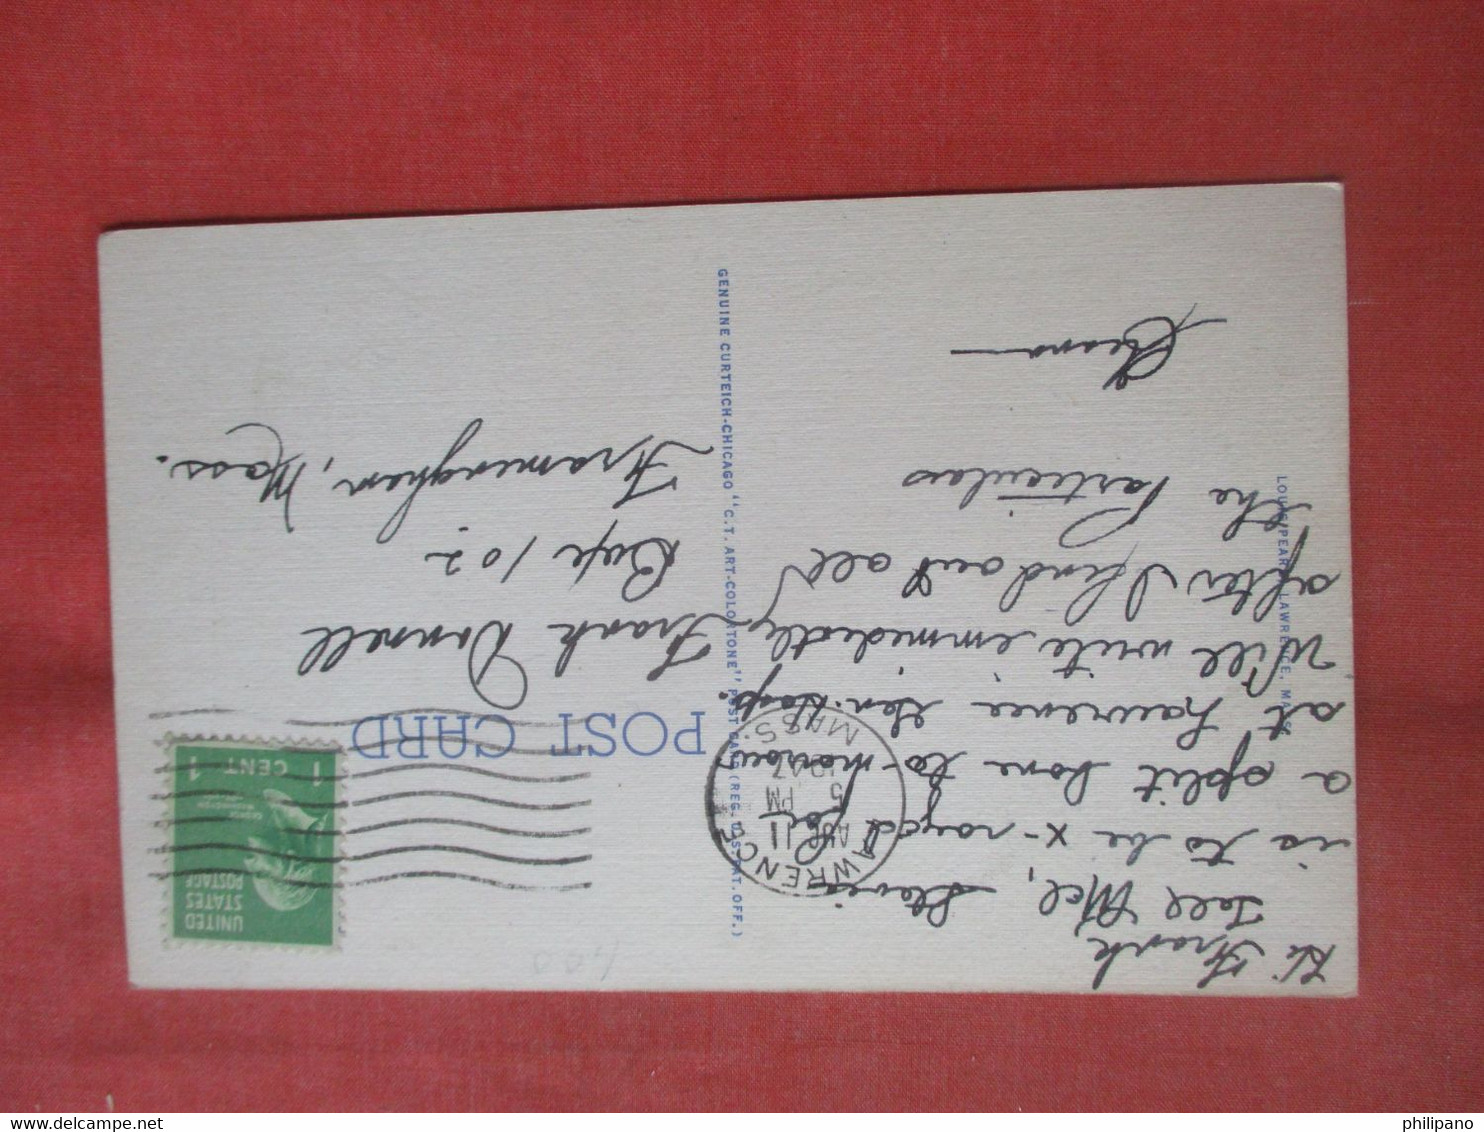 Hi Frank,
Tell Mel, Steve
is to be x-rayed for
a split bone to-morrow
at Lawrence Gen. Hosp.
Will write immediatly
after I find out all
the Particulars
LOUIS PEARL, LAWRENCE, MASS.
GENUINE CURTEICH-CHICAGO "C.T. ART-COLORTONE" POST CARD (REG. U.S. PAT. OFF.)
POST CARD
LAWRENCE
AUG 11
5 PM
1947
MASS.
UNITED
STATES
POSTAGE
GEORGE
WASHINGTON
1 CENT 1
Frank Donnell
Box 102
Framingham, Mass.
400
philipano